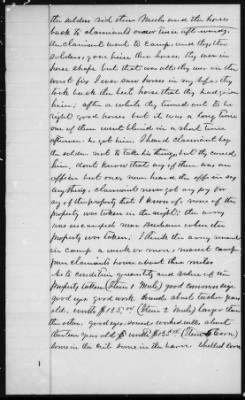 the soldiers rid other Mules and the horses
back to claimants under twice afterwards.
claimant went to camp and
soldiers gave him these horses they were in
horse shape but that was all they was in the
worst fix I ever saw horses in my life. they
took back the best horse that they had given
him; after a while they turned out to be
right good horses but it was a long time
one of them went blind in a short time
after he got him. I heard claimant beg
the soldiers not to take his things, but they cursed
him, dont know that any of them was an
officer but once never heard the officer say
anything. claimant never got any pay for
any of the property that I know of. some of the
property was taken in the night; the army
was encamped near Buchanan when the
property was taken; I think the army remained
in camp a week or more; nearest camp
from claimants house about three miles
As to condition quantity and value of the
property taken (Item 1 Mule) good common size
good eyes good work hands about twelve years
old. worth $125.00 (Item 2 Mule) larger than
the other. good eyes. sound worked well. about
thirteen years old worth $125.00 (Item 3 Corn)
some in the crib some in the barn. shelled corn